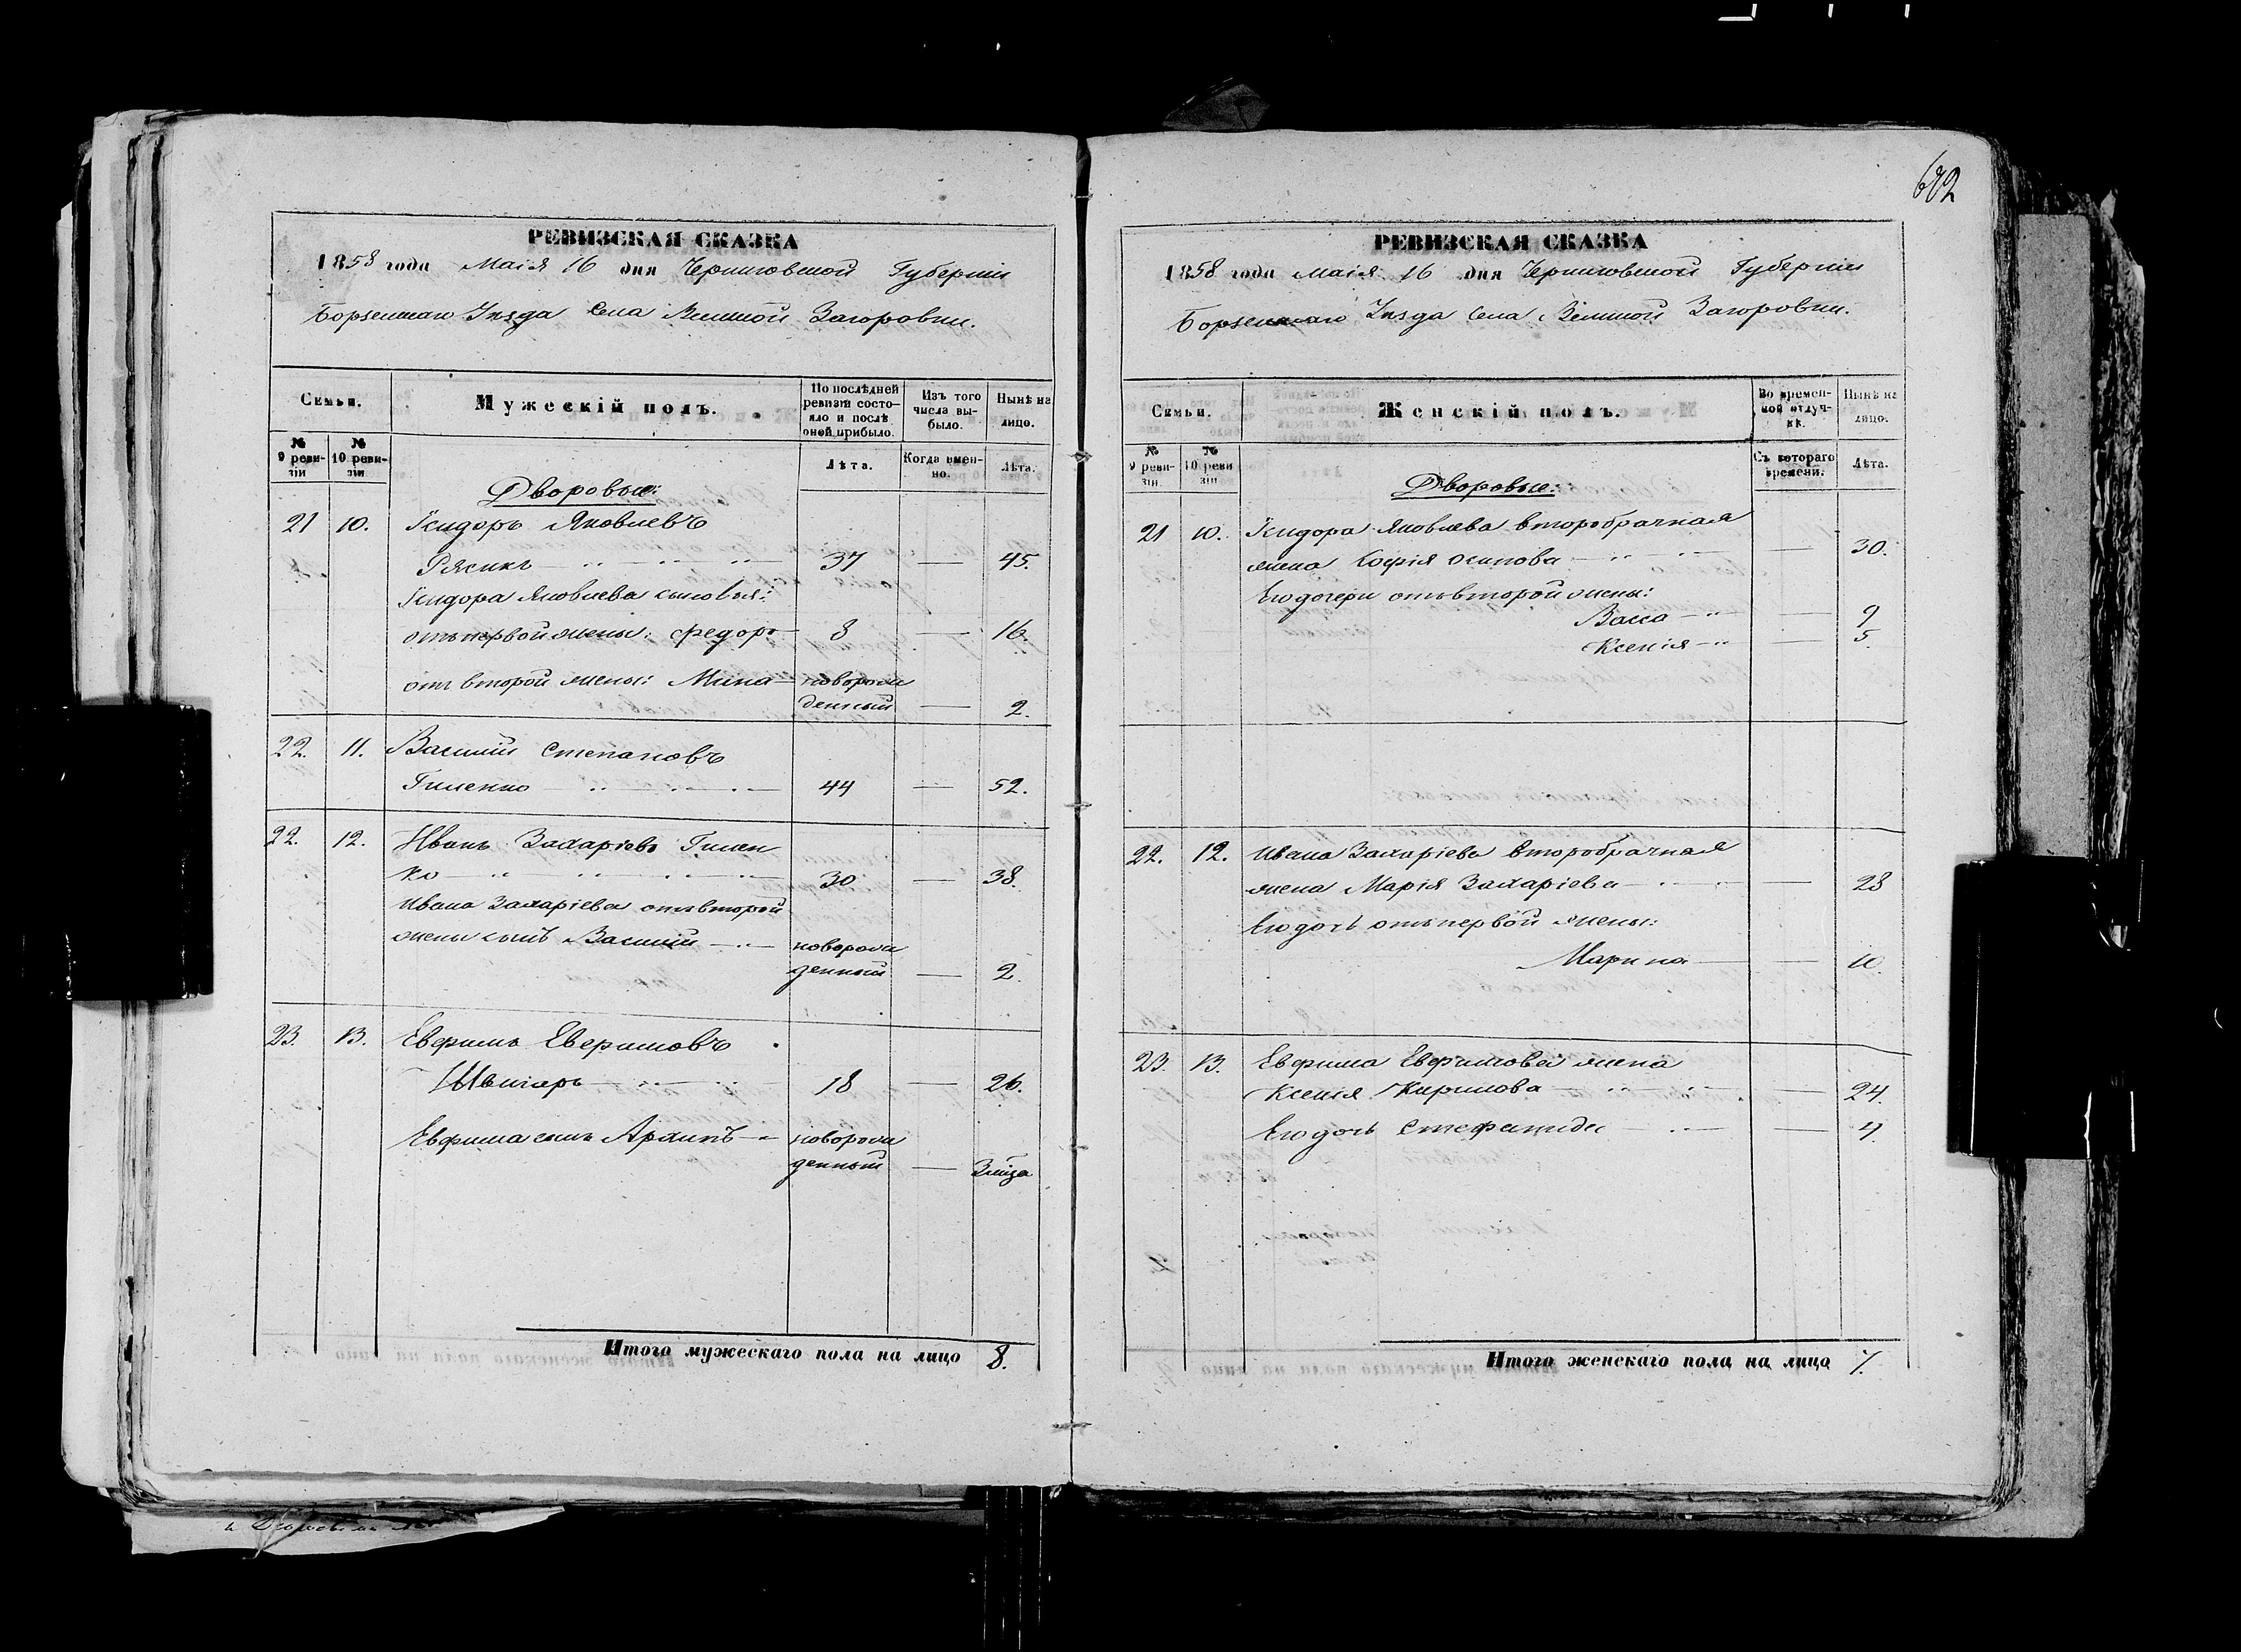 682
РЕВИЗСКАЯ СКАЗКА
1858 года Маія 16 дня Черниговской Губерніи
Борзенскаго Уѣзда Села Великой Загоровки.
Семьи.
Мужескій полъ.
По послѣдней ревизіи состояло и послѣ оной прибыло.
Изъ того числа выбыло.
Нынѣ на лицо.
№ 9 ревизіи
№ 10 ревизіи
Лѣта.
Когда именно.
Лѣта.
Дворовые:
21 10. Исидоръ Яковлевъ
Рясикъ 37 — 45.
Исидора Яковлева сыновья:
отъ первой жены: Федоръ 8 — 16.
отъ второй жены: Мина новорож
денный — 2.
22. 11. Василій Степановъ
Гиленко 44 — 52.
22. 12. Иванъ Захаріевъ Гилен
ко 30 — 38.
Ивана Захаріева отъ второй
жены сынъ Василій новорож
денный — 2.
23. 13. Евфимъ Евфимовъ
Швыгарь 18 — 26.
Евфима сынъ Архипъ новорож
денный —
Итого мужескаго пола на лицо 8.
РЕВИЗСКАЯ СКАЗКА
1858 года Маія 16 дня Черниговской Губерніи
Борзенскаго Уѣзда Села Великой Загоровки.
Семьи.
Женскій полъ.
Во временной отлучкѣ.
Нынѣ на лицо.
№ 9 ревизіи.
№ 10 ревизіи
Съ котораго времени.
Лѣта.
Дворовые:
21 10. Исидора Яковлева второбрачная
жена Софія Осипова — 30.
Его дочери отъ второй жены:
Васса — 9
Ксенія — 5.
22. 12. Ивана Захаріева второбрачная
жена Марія Захаріева — 28
Его дочь отъ первой жены:
Марина — 10.
23. 13. Евфима Евфимова жена
Ксенія Кирилова — 24.
Его дочь Стефанида — 4.
Итого женскаго пола на лицо 7.